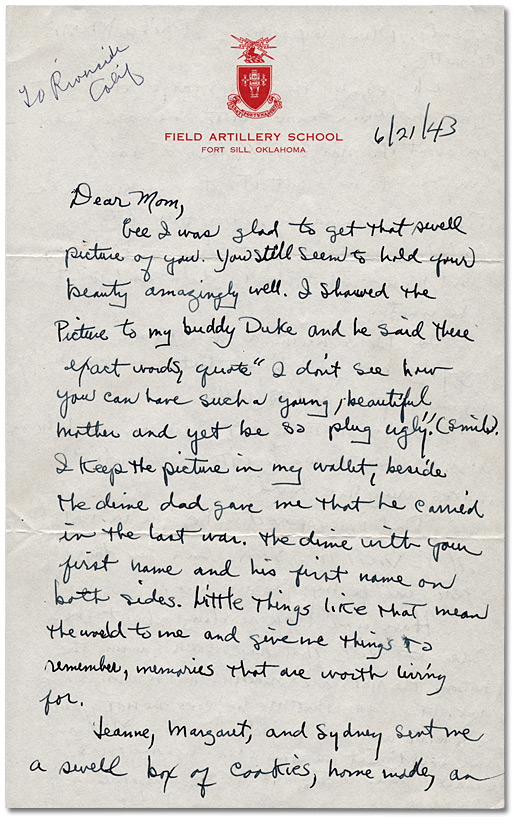 To Riverside
Calif
FIELD ARTILLERY SCHOOL
FORT SILL, OKLAHOMA
6/21/43
Dear Mom,
Gee I was glad to get that swell
picture of you. You still seem to hold your
beauty amazingly well. I showed the
Picture to my buddy Duke and he said these
exact words, quote "I don't see how
you can have such a young, beautiful
mother and yet be so plug ugly." (Smile).
I keep the picture in my wallet, beside
the dime dad gave me that he carried
in the last war. The dime with your
first name and his first name on
both sides. Little things like that mean
the world to me and give me things to
remember, memories that are worth living
for.
Jeanne, Margaret, and Sydney sent me
a swell box of cookies, home made, an